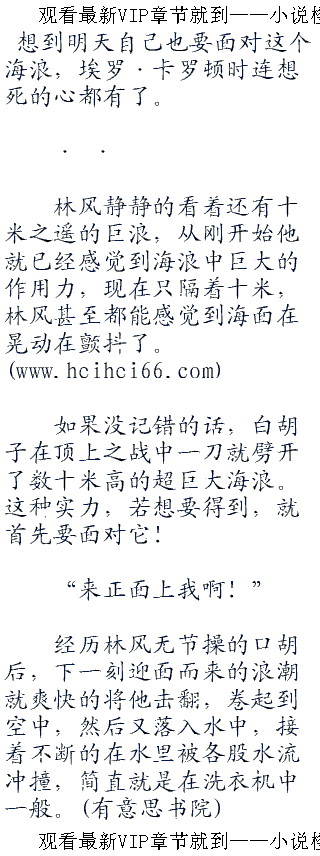 观看最新VIP章节就到——小说
想到明天自己也要面对这个
海浪，埃罗·卡罗顿时连想
死的心都有了。
. .
林风静静的看着还有十
米之遥的巨浪，从刚开始他
就已经感觉到海浪中巨大的
作用力，现在只隔着十米，
林风甚至都能感觉到海面在
晃动在颤抖了。
(www.hcihci66.com)
如果没记错的话，白胡
子在顶上之战中一刀就劈开
了数十米高的超巨大海浪。
这种实力，若想要得到，就
首先要面对它！
“来正面上我啊！”
经历林风无节操的口胡
后，下一刻迎面而来的浪潮
就爽快的将他击翻，卷起到
空中，然后又落入水中，接
着不断的在水里被各股水流
冲撞，简直就是在洗衣机中
一般。(有意思书院)
观看最新VIP章节就到——小说